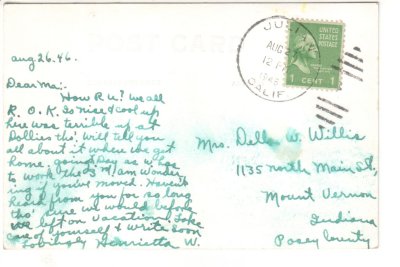 POST CARD
Aug 26. 46.
Dear Ma:-
How R u? We all
R. O. K. Is nice & cool up
here was terrible up at
Dollies tho'. Will tell you
all about it when we get
home. going Day as
to work the 3rd. Am wonder-
ing if you've moved. Haven't
heard from you for so long
tho' sure we would before
we left on vacation. Take
care of yourself & write soon
Lovingly Henrietta W.
AUG
12 PM
1946
CALIF
UNITED STATES POSTAGE
1 CENT 1
Mrs. Della W. Willis
1135 North Main St,
Mount Vernon
Indiana
Posey County